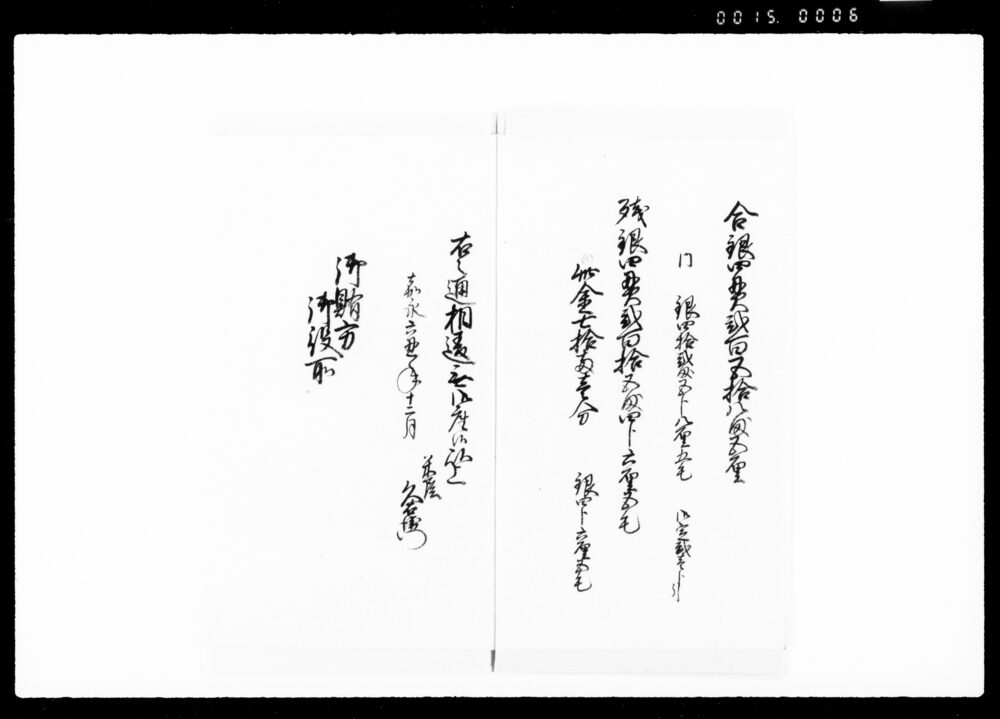 0015.0006
合銀四貫弐百五拾八匁五厘
内 銀四拾弐匁五分八厘五毛 御定
残銀四貫弐百拾五匁四分六厘五毛
此金七拾両壱分 銀四分六厘五毛
右之通相違無御座候以上
嘉永六丑年十二月
米屋
久右衛門
御賄方
御役所